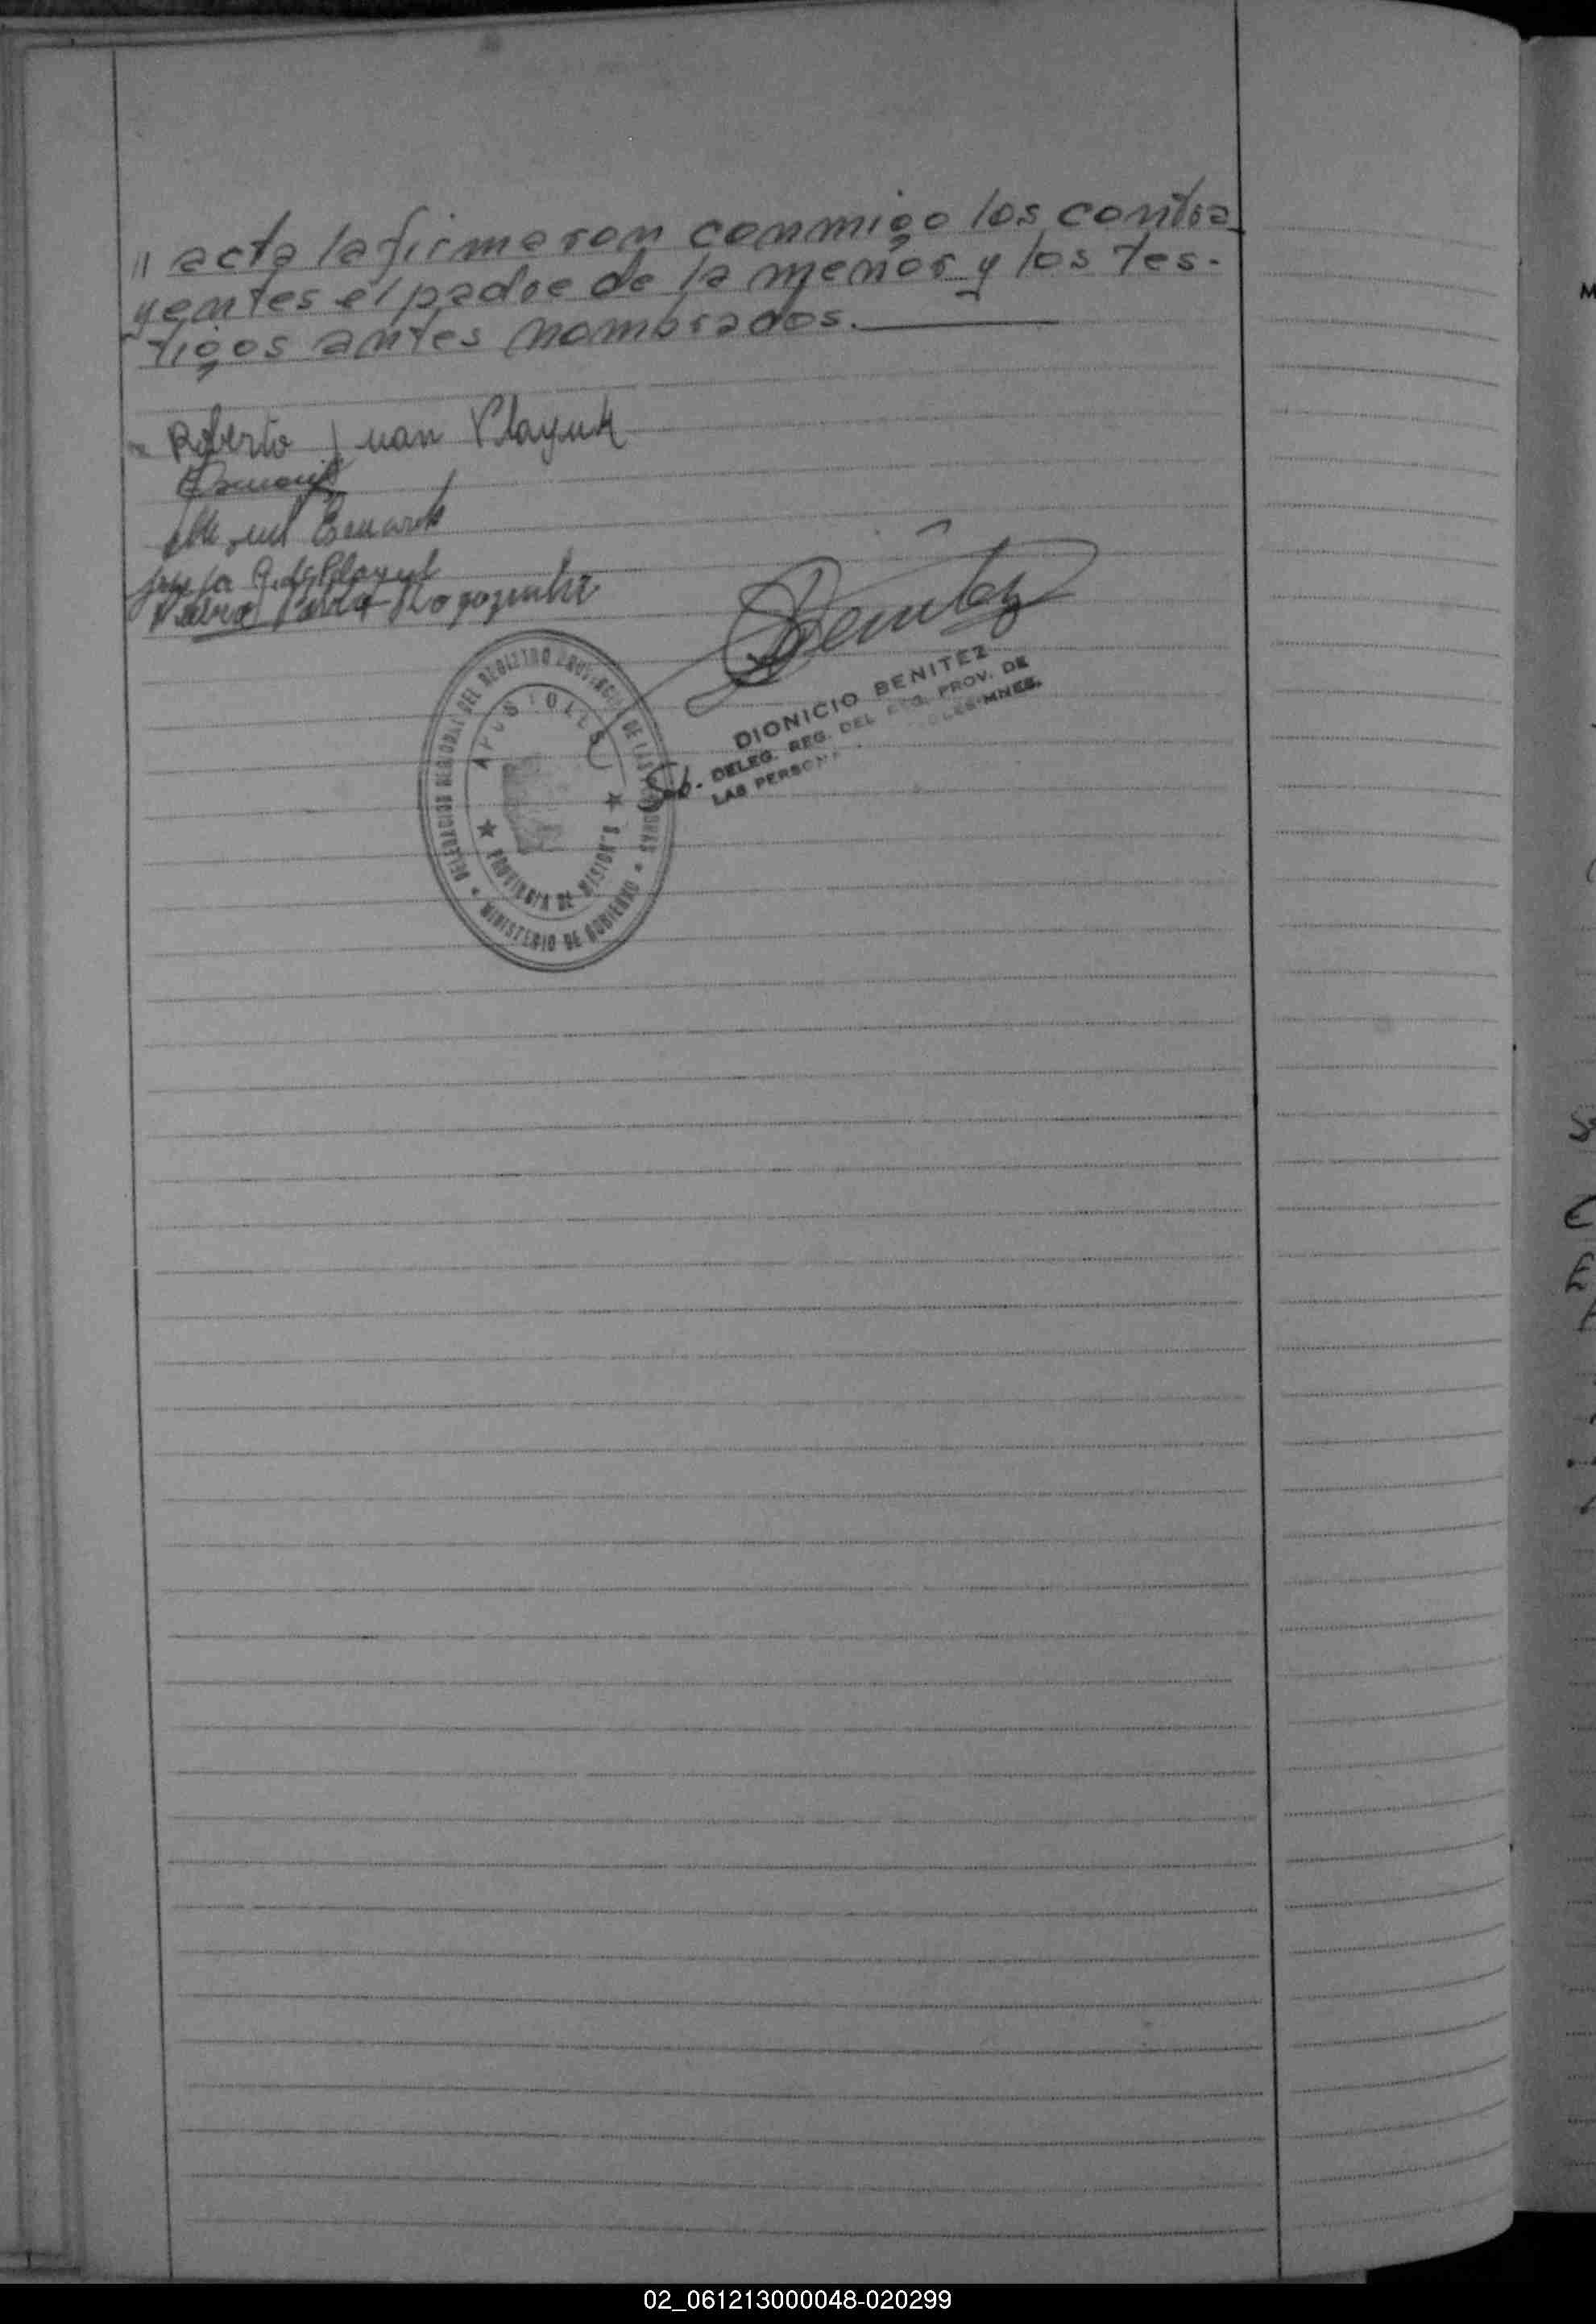 " acta la firmaron conmigo los contra
yentes el padre de la menor y los tes-
tigos antes nombrados.
Roberto Juan Playuk
Benitez
DIONICIO BENITEZ
Sub. DELEG. REG. DEL REG. PROV. DE
LAS PERSONAS
DELEGACION REGIONAL DEL REGISTRO PROVINCIAL DE LAS PERSONAS
APOSTOLES
PROVINCIA DE MISIONES
MINISTERIO DE GOBIERNO
02_061213000048-020299